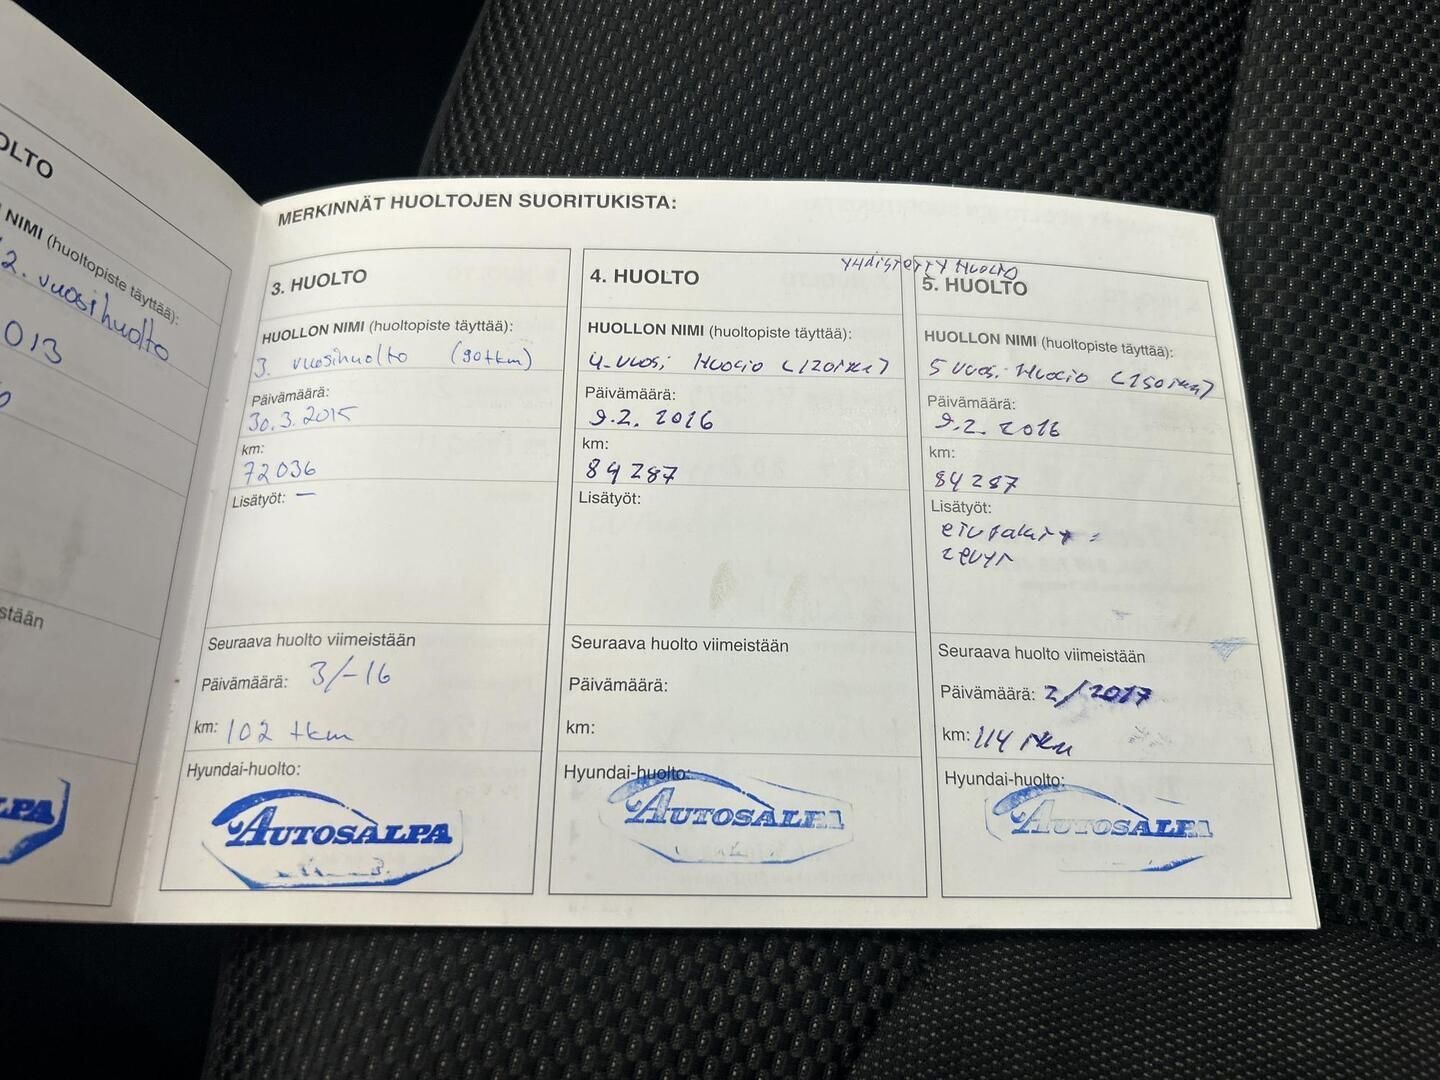 OLTO
NIMI (huoltopiste täyttää):
2. vuosihuolto
013
stään
LPA
MERKINNÄT HUOLTOJEN SUORITUKISTA:
3. HUOLTO
HUOLLON NIMI (huoltopiste täyttää):
3. vuosihuolto (90tkm)
Päivämäärä:
30.3.2015
km:
72036
Lisätyöt: –
Seuraava huolto viimeistään
Päivämäärä: 3/-16
km: 102 tkm
Hyundai-huolto:
AUTOSALPA
yhdistetty huolto
4. HUOLTO
HUOLLON NIMI (huoltopiste täyttää):
4-vuosi Huolto (120tkm)
Päivämäärä:
9.2. 2016
km:
84287
Lisätyöt:
Seuraava huolto viimeistään
Päivämäärä:
km:
Hyundai-huolto:
AUTOSALPA
5. HUOLTO
HUOLLON NIMI (huoltopiste täyttää):
5 vuosi Huolto (150tkm)
Päivämäärä:
9.2. 2016
km:
84287
Lisätyöt:
Seuraava huolto viimeistään
Päivämäärä: 2/2017
km: 114 tkm
Hyundai-huolto:
AUTOSALPA